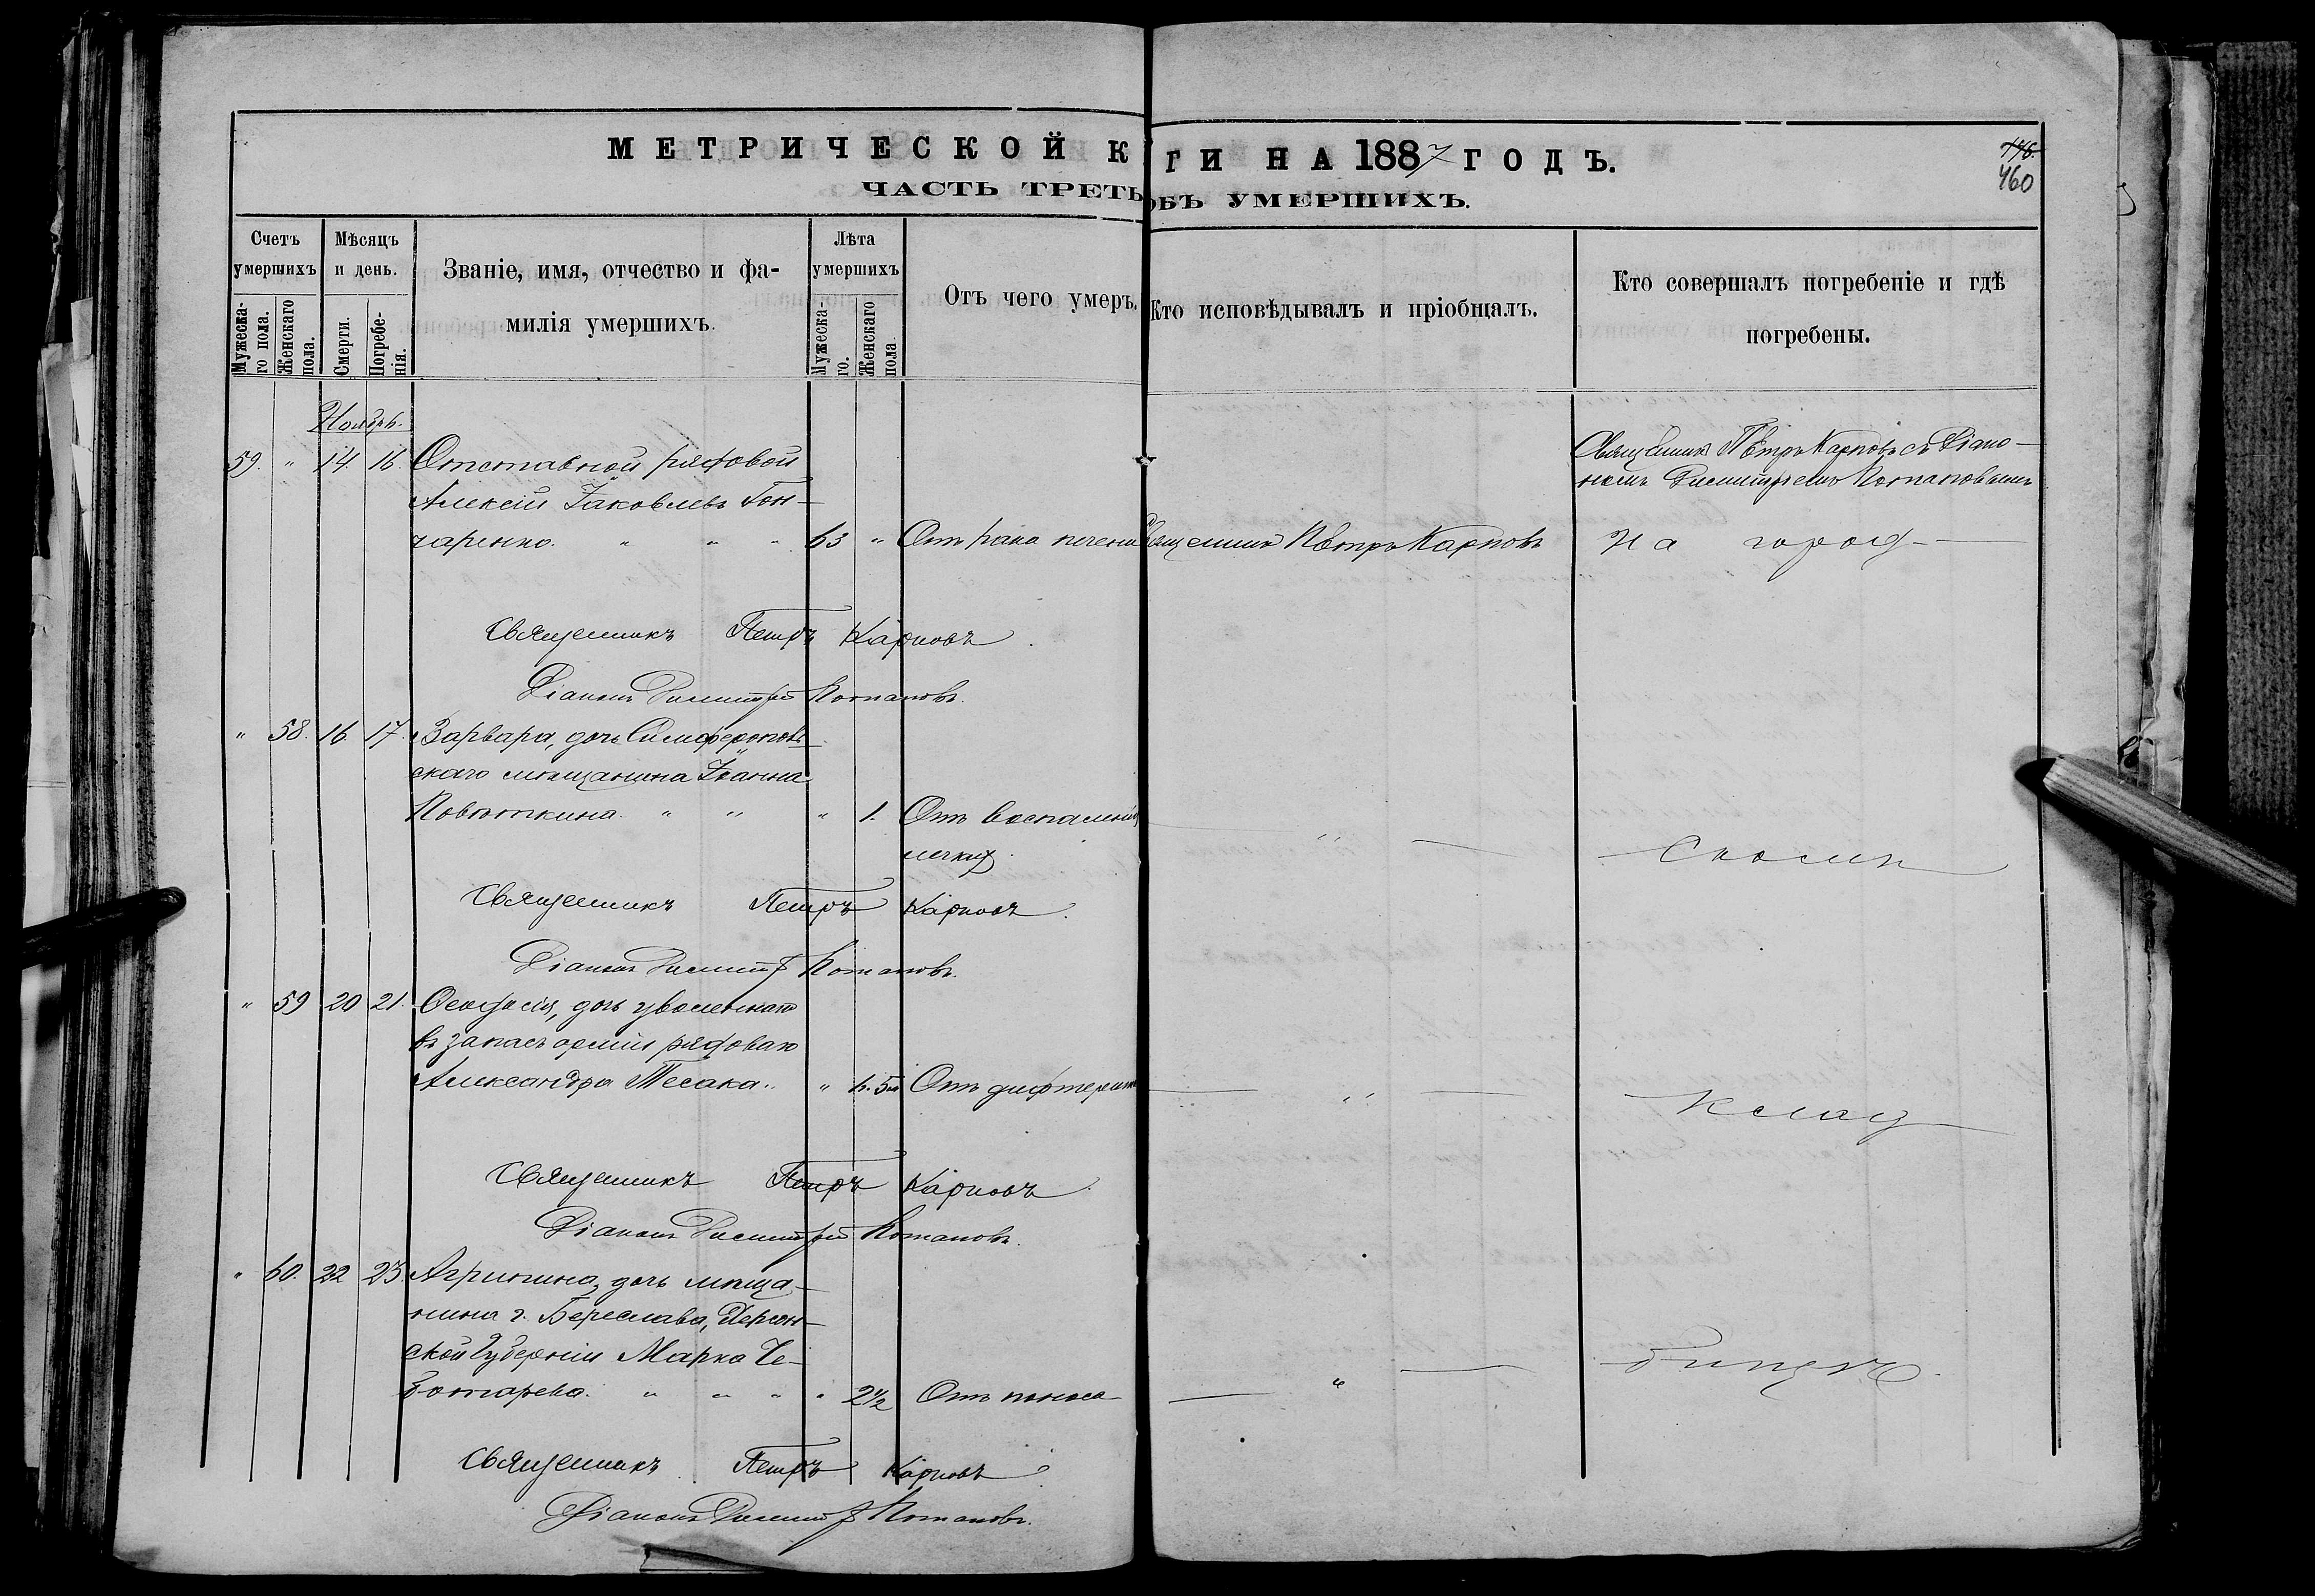 МЕТРИЧЕСКОЙ К ГИ НА 1887 ГОДЪ.
ЧАСТЬ ТРЕТЬ ОБЪ УМЕРШИХЪ.
460
Счетъ умершихъ
Мужеска-
го пола.
Женскаго
пола.
Мѣсяцъ
и день.
Смерти.
Погребе-
нія.
Званіе, имя, отчество и фа-
милія умершихъ.
Лѣта
умершихъ
Мужеска-
го.
Женскаго
пола.
Отъ чего умеръ.
Кто исповѣдывалъ и пріобщалъ.
Кто совершалъ погребеніе и гдѣ
погребены.
Ноябрь.
59. " 14 16. Отставной рядовой
Алексій Іаковлевъ Гон-
чаренко. " " " 63 " Отъ рака печени Священникъ Пётръ Карповъ
Священникъ Пётръ Карповъ съ Діако-
номъ Димитріемъ Потаповымъ
на город-
Священникъ Петръ Карповъ.
Діаконъ Димитрій Потаповъ.
" 58. 16. 17. Варвара, дочь Симферополь-
скаго мѣщанина Іоанна
Повѣткина. " " " 1. Отъ воспаленія — " —
легких.
скомъ
Священникъ Петръ Карповъ.
Діаконъ Димитр Потаповъ.
" 59 20 21. Ѳеодосія, дочь уволеннаго
въ запасъ арміи рядоваго
Александра Тесака. " 6. 5м Отъ дифтерита — " — клад
Священникъ Петръ Карповъ.
Діаконъ Димитрій Потаповъ.
" 60. 22 23. Агрипина, дочь мѣща-
нина г. Береслава, Херсон-
ской Губерніи Марка Че-
ботарева. " " " " 2½ Отъ поноса — " — бищѣ.
Священникъ Петръ Карповъ
Діаконъ Димитр Потаповъ.